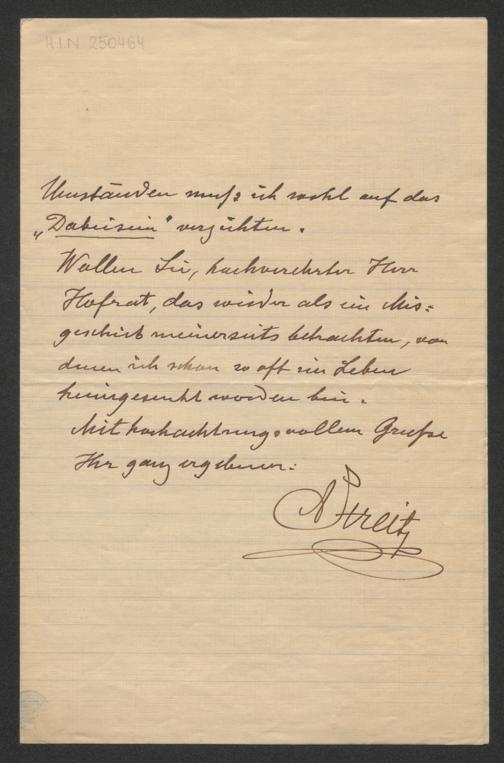 H.I.N 250464
Umständen muß ich wohl auf das
„Dabeisein" verzichten.
Wollen Sie, hochverehrter Herr
Hofrat, das wieder als ein Mis=
geschick meinerseits betrachten, von
denen ich schon so oft im Leben
heimgesucht worden bin.
Mit hochachtungsvollem Gruße
Ihr ganz ergebener:
A Streitz